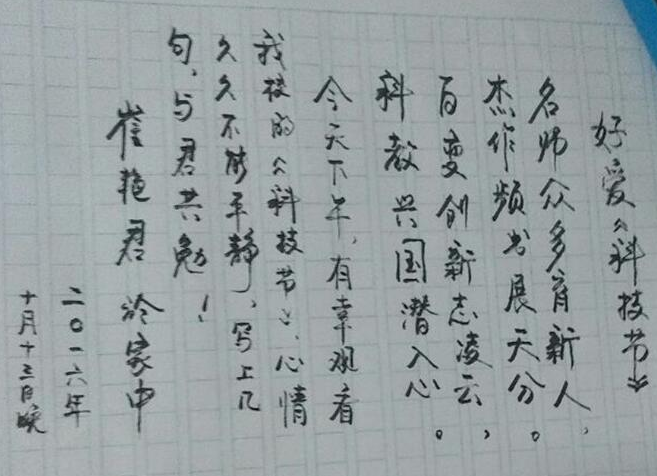 好爱《科技节》
名师众多育新人，
杰作频出展天分。
百变创新志凌云，
科教兴国潜入心。
今天下午，有幸观看
我校的《科技节》，心情
久久不能平静，写上几
句，与君共勉！
崔艳君 于家中
二〇一六年
十月十三日晚